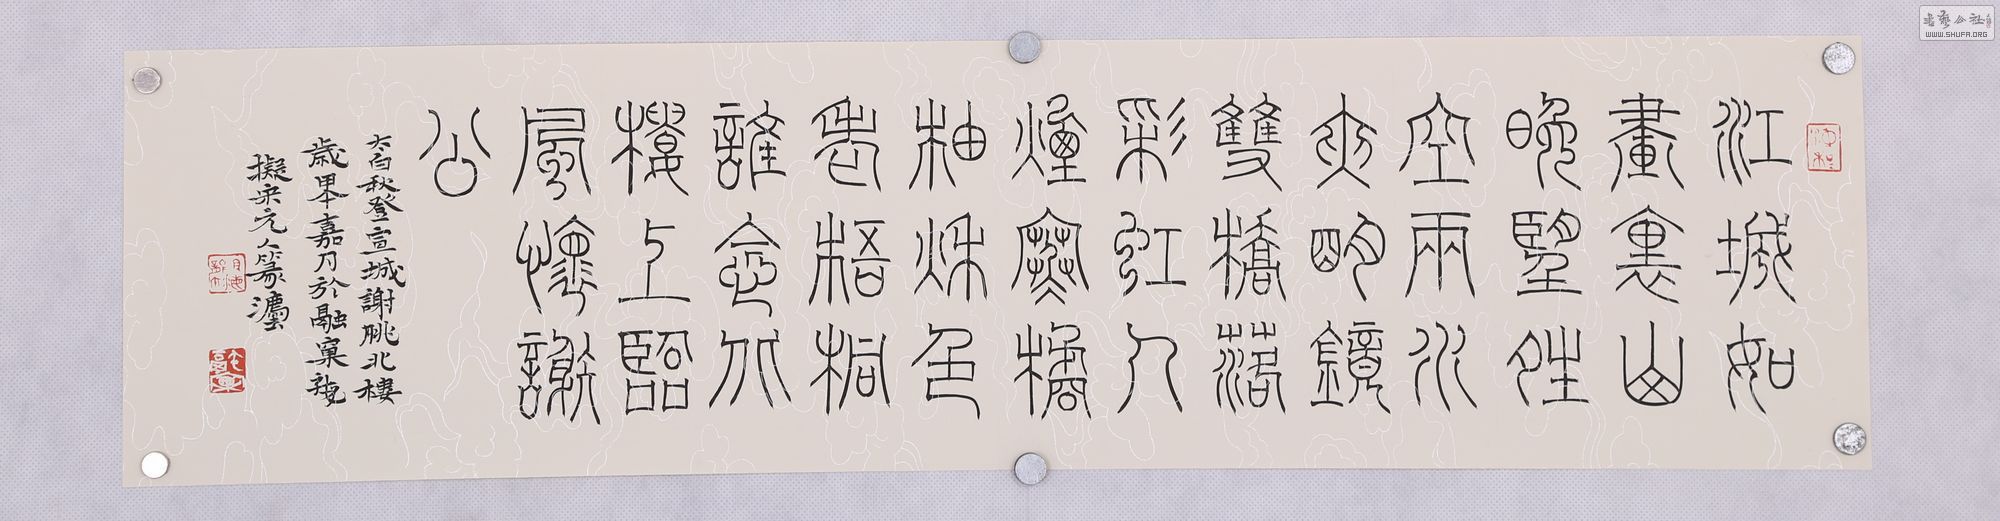 江城如
畫裏山
晚望晴
空兩水
夾明鏡
雙橋落
彩虹人
煙寒橘
柚秋色
老梧桐
誰念北
樓上臨
風懷謝
公
太白秋登宣城謝朓北樓
歲嘉月於融窠
擬宋元人篆灋
书艺公社
WWW.SHUFA.ORG